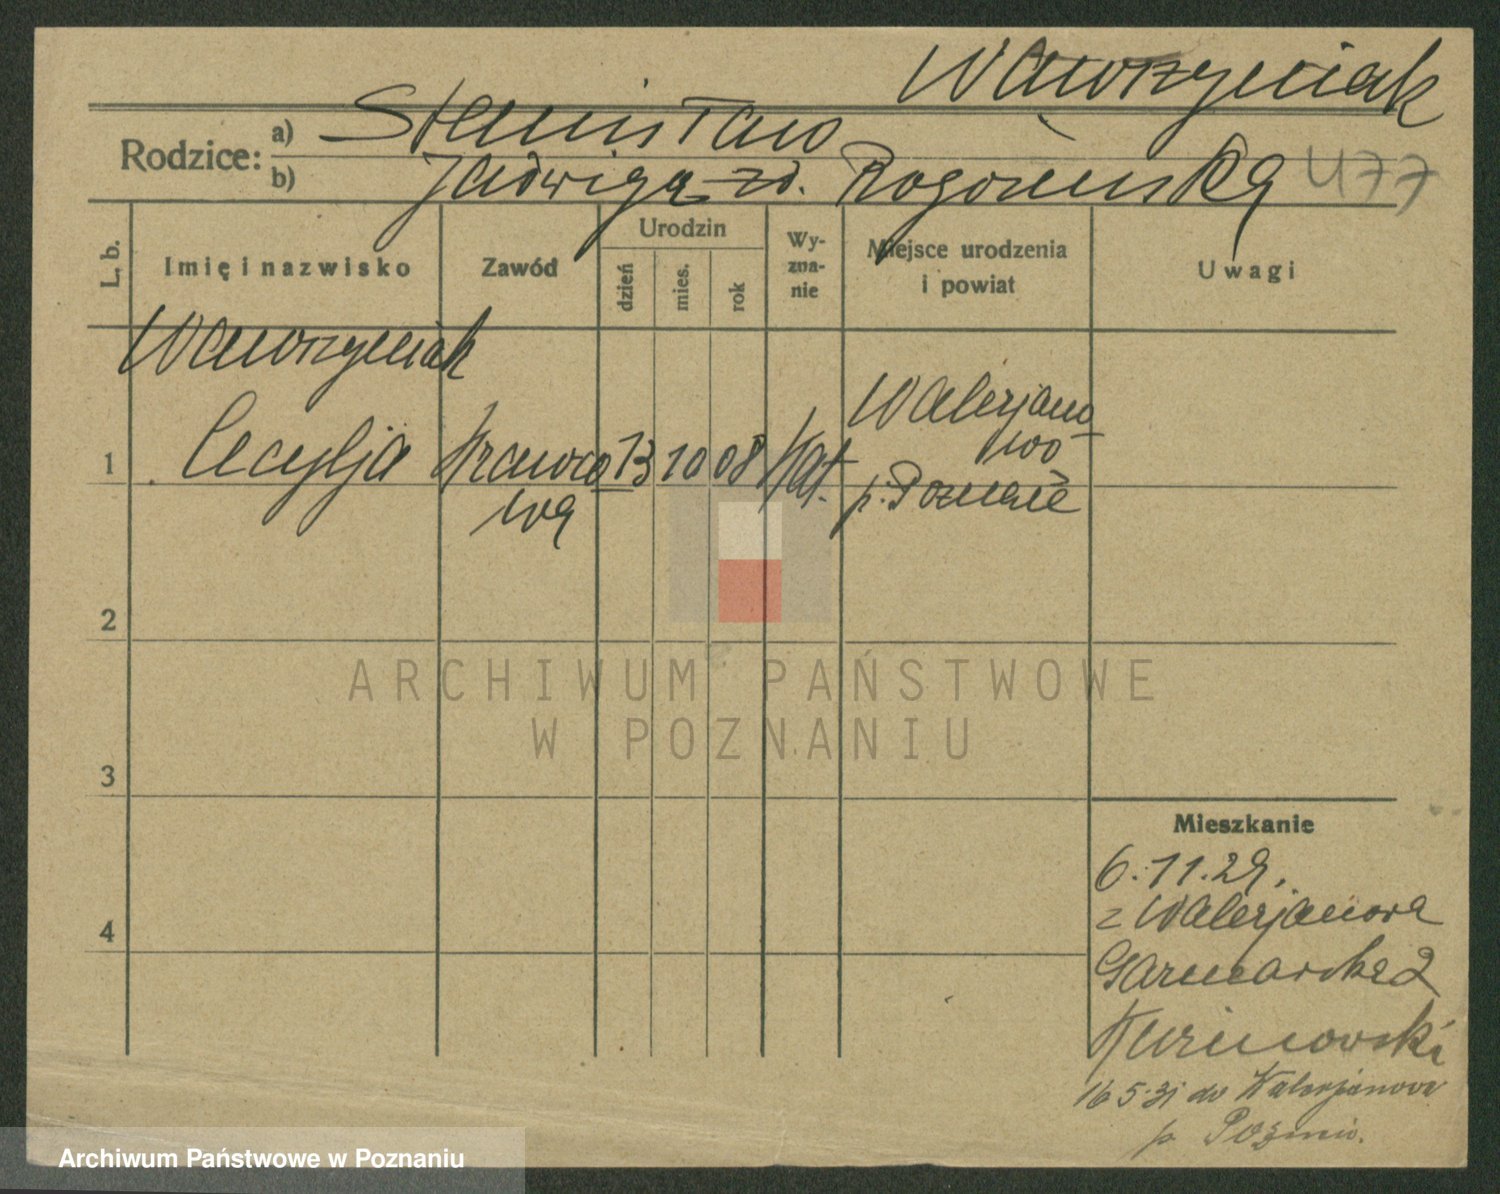 Wawrzyniak
Rodzice: a) Stanisław
b) Jadwiga zd. Rogozińska 477
L. b. Imię i nazwisko Zawód Urodzin dzień mies. rok Wy-zna-nie Miejsce urodzenia i powiat Uwagi
Wawrzyniak
1 Cecylja Krawco- 13 10 08 Kat. Walerjano-
wa wo
p. Poznań
2
ARCHIWUM PAŃSTWOWE
W POZNANIU
3
Mieszkanie
6.11.29.
4 z Walerjanowa
Garncarska 2
16 5.31 do Walerjanowa
p. Pozna.
Archiwum Państwowe w Poznaniu